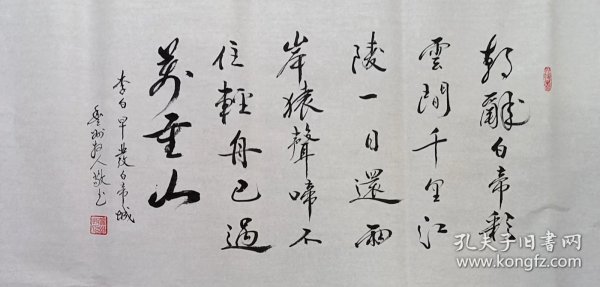 朝辭白帝彩
雲間千里江
陵一日還兩
岸猿聲啼不
住輕舟已過
萬重山
李白早發白帝城
散人敬书
孔夫子旧書网
www.kongfz.com